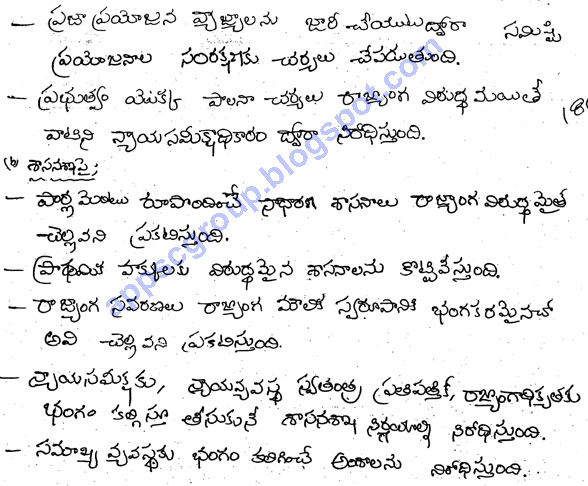 - ప్రజా ప్రయోజన వ్యాజ్యాలను జారీ చేయుటద్వారా సమిష్టి
ప్రయోజనాల సంరక్షణకు చర్యలు చేపడుతుంది.
- ప్రభుత్వం యొక్క పాలనా చర్యలు రాజ్యాంగ విరుద్ధమయితే
వాటిని న్యాయసమీక్షాధికారం ద్వారా నిరోధిస్తుంది.
(b) శాసనశాఖపై:
- పార్లమెంటు రూపొందించే సాధారణ శాసనాలు రాజ్యాంగ విరుద్ధమైతే
చెల్లవని ప్రకటిస్తుంది.
- ప్రాథమిక హక్కులకు విరుద్ధమైన శాసనాలను కొట్టివేస్తుంది.
- రాజ్యాంగ సవరణలు రాజ్యాంగ మౌలిక స్వరూపానికి భంగకరమైనచో
అవి చెల్లవని ప్రకటిస్తుంది.
- న్యాయసమీక్షకు, న్యాయవ్యవస్థ స్వతంత్ర ప్రతిపత్తికీ, రాజ్యాంగాధిక్యతకు
భంగం కల్గిస్తూ తీసుకునే శాసనశాఖ నిర్ణయాల్ని నిరోధిస్తుంది.
- సమాఖ్య వ్యవస్థకు భంగం కలిగించే అంశాలను నిరోధిస్తుంది.
appscgroup.blogspot.com